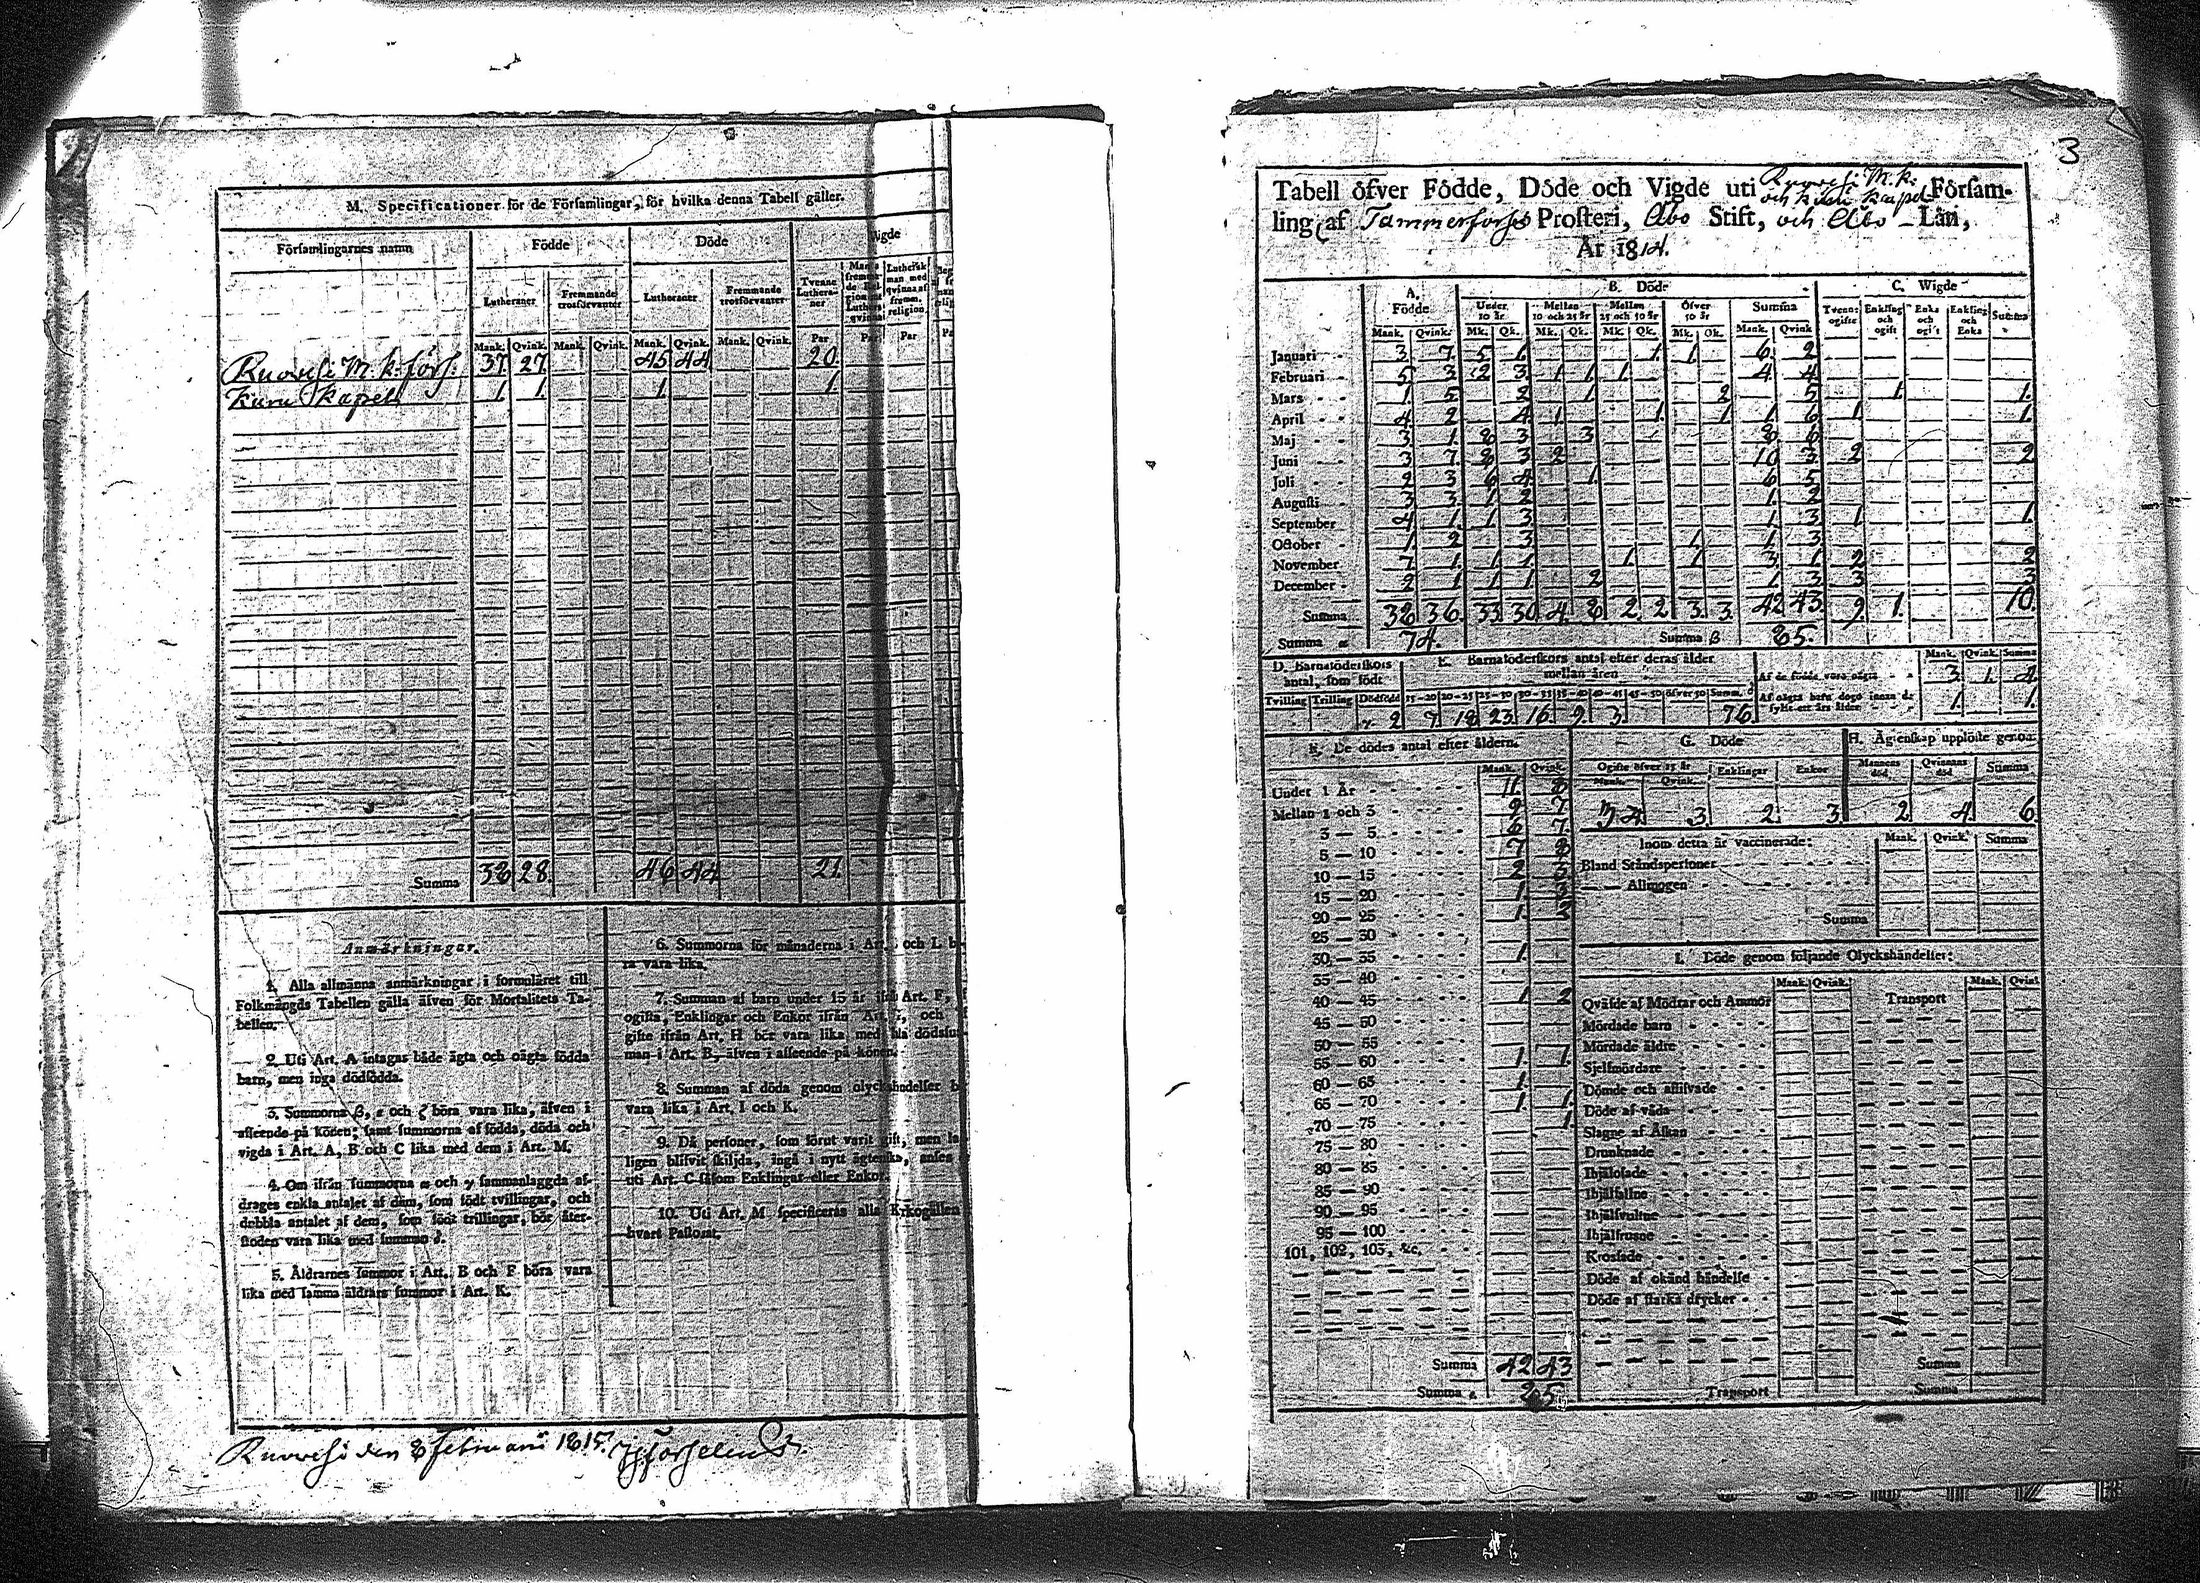 M. Specificationer för de Församlingar, för hvilka denna Tabell gäller.
Församlingarnes namn
Födde
Döde
Lutheraner
Fremmande trosförvanter
Lutheraner
Fremmande trosförvanter
Tvenne Lutheraner
Luthersk man med qvinna af fremm. religion.
Mank. Qvink. Mank. Qvink. Mank. Qvink. Mank. Qvink. Par Par Par
Ruovesi M. k. förs. 37 27 45 44 20.
Kuru Kapell 1. 1. 1. 1.
Summa 38 28. 46 44 21.
Anmärkningar.
1. Alla allmänna anmärkningar i formuläret till
Folkmängds Tabellen gälla äfven för Mortalitets Ta-
bellen.
2. Uti Art. A intagas både ägta och oägta födda
barn, men inga dödfödda.
3. Summorna β, ε och ζ böra vara lika, äfven i
afseende på könen; samt summorna af födda, döda och
vigda i Art. A, B och C lika med dem i Art. M.
4. Om ifrån summorna α och γ sammanlaggda af-
drages enkla antalet af dem, som födt tvillingar, och
dubbla antalet af dem, som födt trillingar, bör åter-
stoden vara lika med summan δ.
5. Åldrarnes summor i Art. B och F böra vara
lika med samma åldrars summor i Art. K.
6. Summorna för månaderna i Art. och L
ra vara lika.
7. Summan af barn under 15 år ifrån Art. F,
ogifta, Enklingar och Enkor ifrån Art. och
gifte ifrån Art. H bör vara lika med
man i Art. B, äfven i afseende på könen.
8. Summan af döda genom olyckshändelser
vara lika i Art. I och K.
9. Då personer, som förut varit gift, men
ligen blifvit skiljda, ingå i nytt ägtenskap, anses
uti Art. C såsom Enklingar eller Enkor.
10. Uti Art. M specificeras alla Kyrkogällen
hvart Pastorat.
Ruovesi den 8 Februarii 1815.
3
Tabell öfver Födde, Döde och Vigde uti Ruovesi M. k. och Kuru Kapel Församling
af Tammerforss Prosteri, Åbo Stift, och Åbo Län,
År 1814.
A. Födde B. Döde C. Wigde
Under 10 år Mellan 10 och 25 år Mellan 25 och 50 år Öfver 50 år Summa Tvenne ogifte Enkling och ogift Enka och ogift Enkling och Enka Summa
Mank. Qvink. Mk. Qk. Mk. Qk. Mk. Qk. Mk. Qk. Mank. Qvink
Januari 3. 7. 5 1. 1. 1. 6. 2
Februari 5 3 2 3 1 1 1. 4. 4
Mars 1. 5 2 1. 2 5 1. 1.
April 4 2 4 1. 1. 1 1. 6 1. 1.
Maj 3 1. 8 3 3 8. 6
Juni 3 7. 8 3 2 10 3 2 2
Juli 2 3 6 4 1. 6 5
Augusti 3 3 1 2 1. 2
September 4 1. 1 3 1. 3 1. 1.
October 1. 2 3 1. 1. 3
November 7. 1. 1. 1. 1. 1 3 1 2 2
December 2 1 1 1 2 1. 3 3 3
Summa 38 36 33 30 4. 8 2. 2 3. 3. 42 43. 9. 1. 10.
Summa α 74. Summa β 85.
D. Barnaföderskors antal, som födt
E. Barnaföderskors antal efter deras ålder mellan åren
Mank. Qvink. Summa
Af de födde voro oägta 3. 1. 4
Af oägta barn dogo innan de fyllt ett års ålder 1. 1.
Tvilling Trilling Dödfödd 15-20 20-25 25-30 30-35 35-40 40-45 45-50 öfver 50 Summ. δ
γ 2 7. 18 23 16. 9. 3. 76.
F. De dödes antal efter åldern.
Mank. Qvink.
Under 1 År 11. 8
Mellan 1 och 3 9 7
3 — 5 6 7.
5 — 10 7 8
10 — 15 2 3
15 — 20 1. 3
20 — 25 1. 2
25 — 30
30 — 35 1.
35 — 40
40 — 45 1. 2
45 — 50
50 — 55
55 — 60 1. 1.
60 — 65 1.
65 — 70 1. 1.
70 — 75 1.
75 — 80
80 — 85
85 — 90
90 — 95
95 — 100
101, 102, 103, &c.
Summa 42 43
Summa 85
G. Döde
Ogifte öfver 15 år Enklingar Enkor
Mank. Qvink.
3. 2 3.
H. Ägtenskap upplöste genom
Mannens död. Qvinnans död. Summa
2 4 6
Inom detta år vaccinerade:
Mank. Qvink. Summa
Bland Ståndspersoner
— — Allmogen
Summa
I. Döde genom följande Olyckshändelser:
Mank. Qvink. Mank. Qvink
Qväfde af Mödrar och Ammor
Transport
Mördade barn
Mördade äldre
Sjelfmördare
Dömde och aflifvade
Döde af våda
Slagne af Åskan
Drunknade
Ihjälfrusne
Krossade
Döde af okänd händelse
Döde af starka drycker
Summa
Transport
Summa